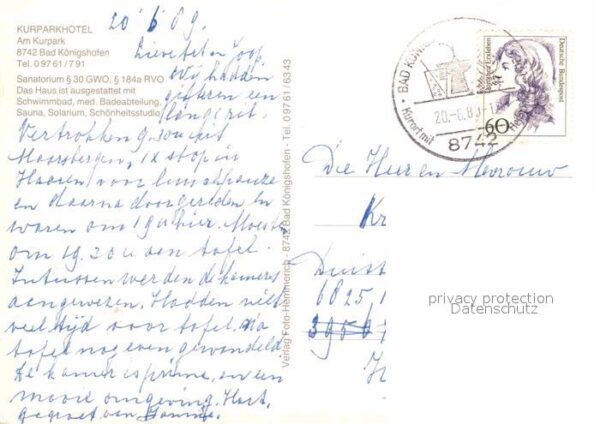 KURPARKHOTEL
Am Kurpark
8742 Bad Königshofen
Tel. 0 97 61 / 7 91
Sanatorium § 30 GWO, § 184a RVO
Das Haus ist ausgestattet mit
Schwimmbad, med. Badeabteilung,
Sauna, Solarium, Schönheitsstudio
20/6 89.
Joop
Wij hadden
gisteren een
lange rit.
Vertrokken 9.30u uit
Maarsbergen, 1x stop in
voor lunchpauze
en daarna doorgereden en
waren om 19u hier. Moesten
om 19.30u aan tafel.
Intussen werden de kamers
aangewezen. Hadden niet
veel tijd voor tafel. Na
tafel nog even gewandeld.
De kamer is prima, en een
mooie omgeving. Hart.
gegroet van
Verlag Foto-Hemmerich - 8742 Bad Königshofen - Tel. 0 97 61 / 63 43
BAD KÖNIGS
20.-6.89
Kurort mit
8742
Deutsche Bundespost
60
Die Heer en Mevrouw
Kr
Duist
6825
privacy protection
Datenschutz